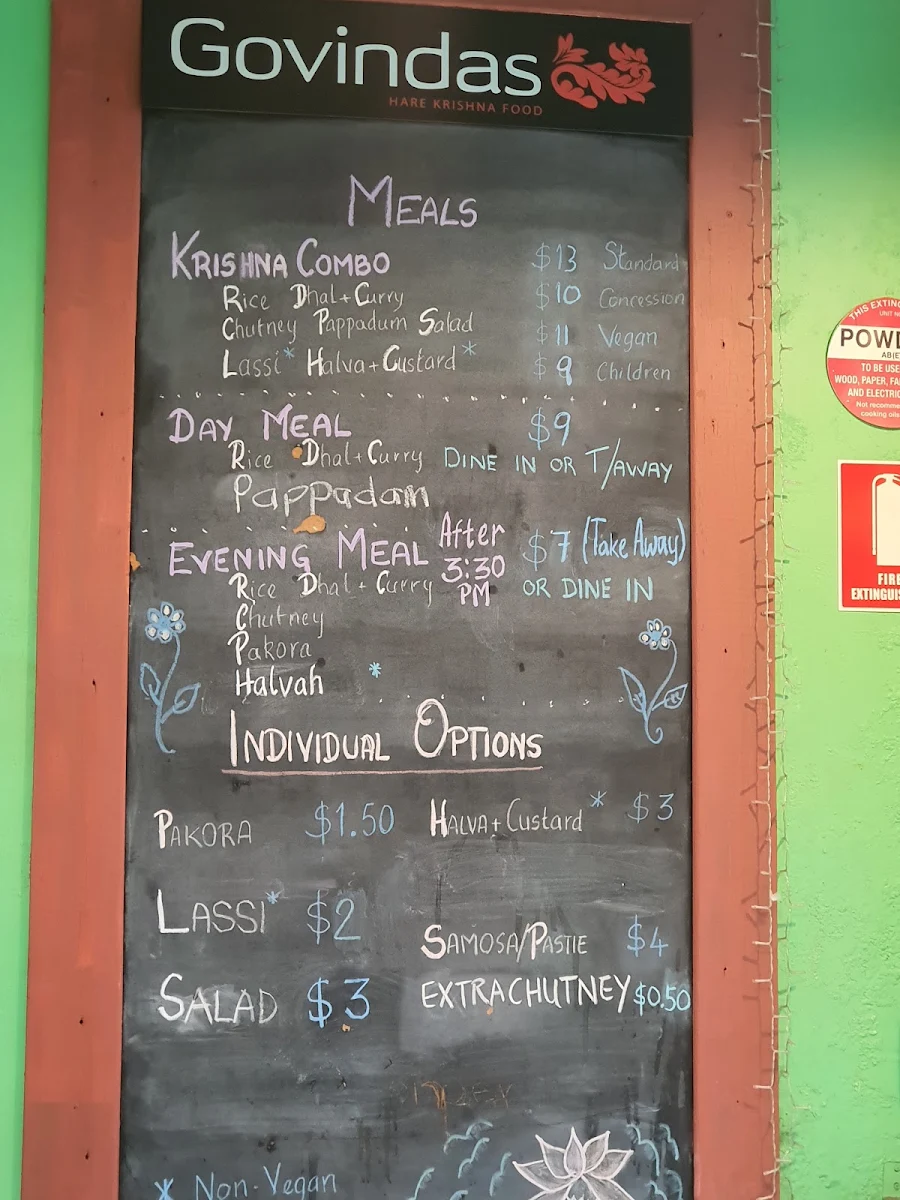 Govindas
HARE KRISHNA FOOD
MEALS
KRISHNA COMBO $13 Standard
Rice Dhal+Curry $10 Concession
Chutney Pappadum Salad $11 Vegan
Lassi* Halva+Custard* $9 Children
DAY MEAL $9
Rice Dhal+Curry DINE IN OR T/AWAY
Pappadam
EVENING MEAL After 3:30 PM $7 (Take Away)
Rice Dhal+Curry OR DINE IN
Chutney
Pakora
Halvah *
INDIVIDUAL OPTIONS
PAKORA $1.50 HALVA+Custard* $3
LASSI* $2
SAMOSA/PASTIE $4
SALAD $3 EXTRACHUTNEY $0.50
* Non-Vegan
THIS
UNIT
TO BE
WOOD, PAPER,
AND
Not
cooking
FIRE